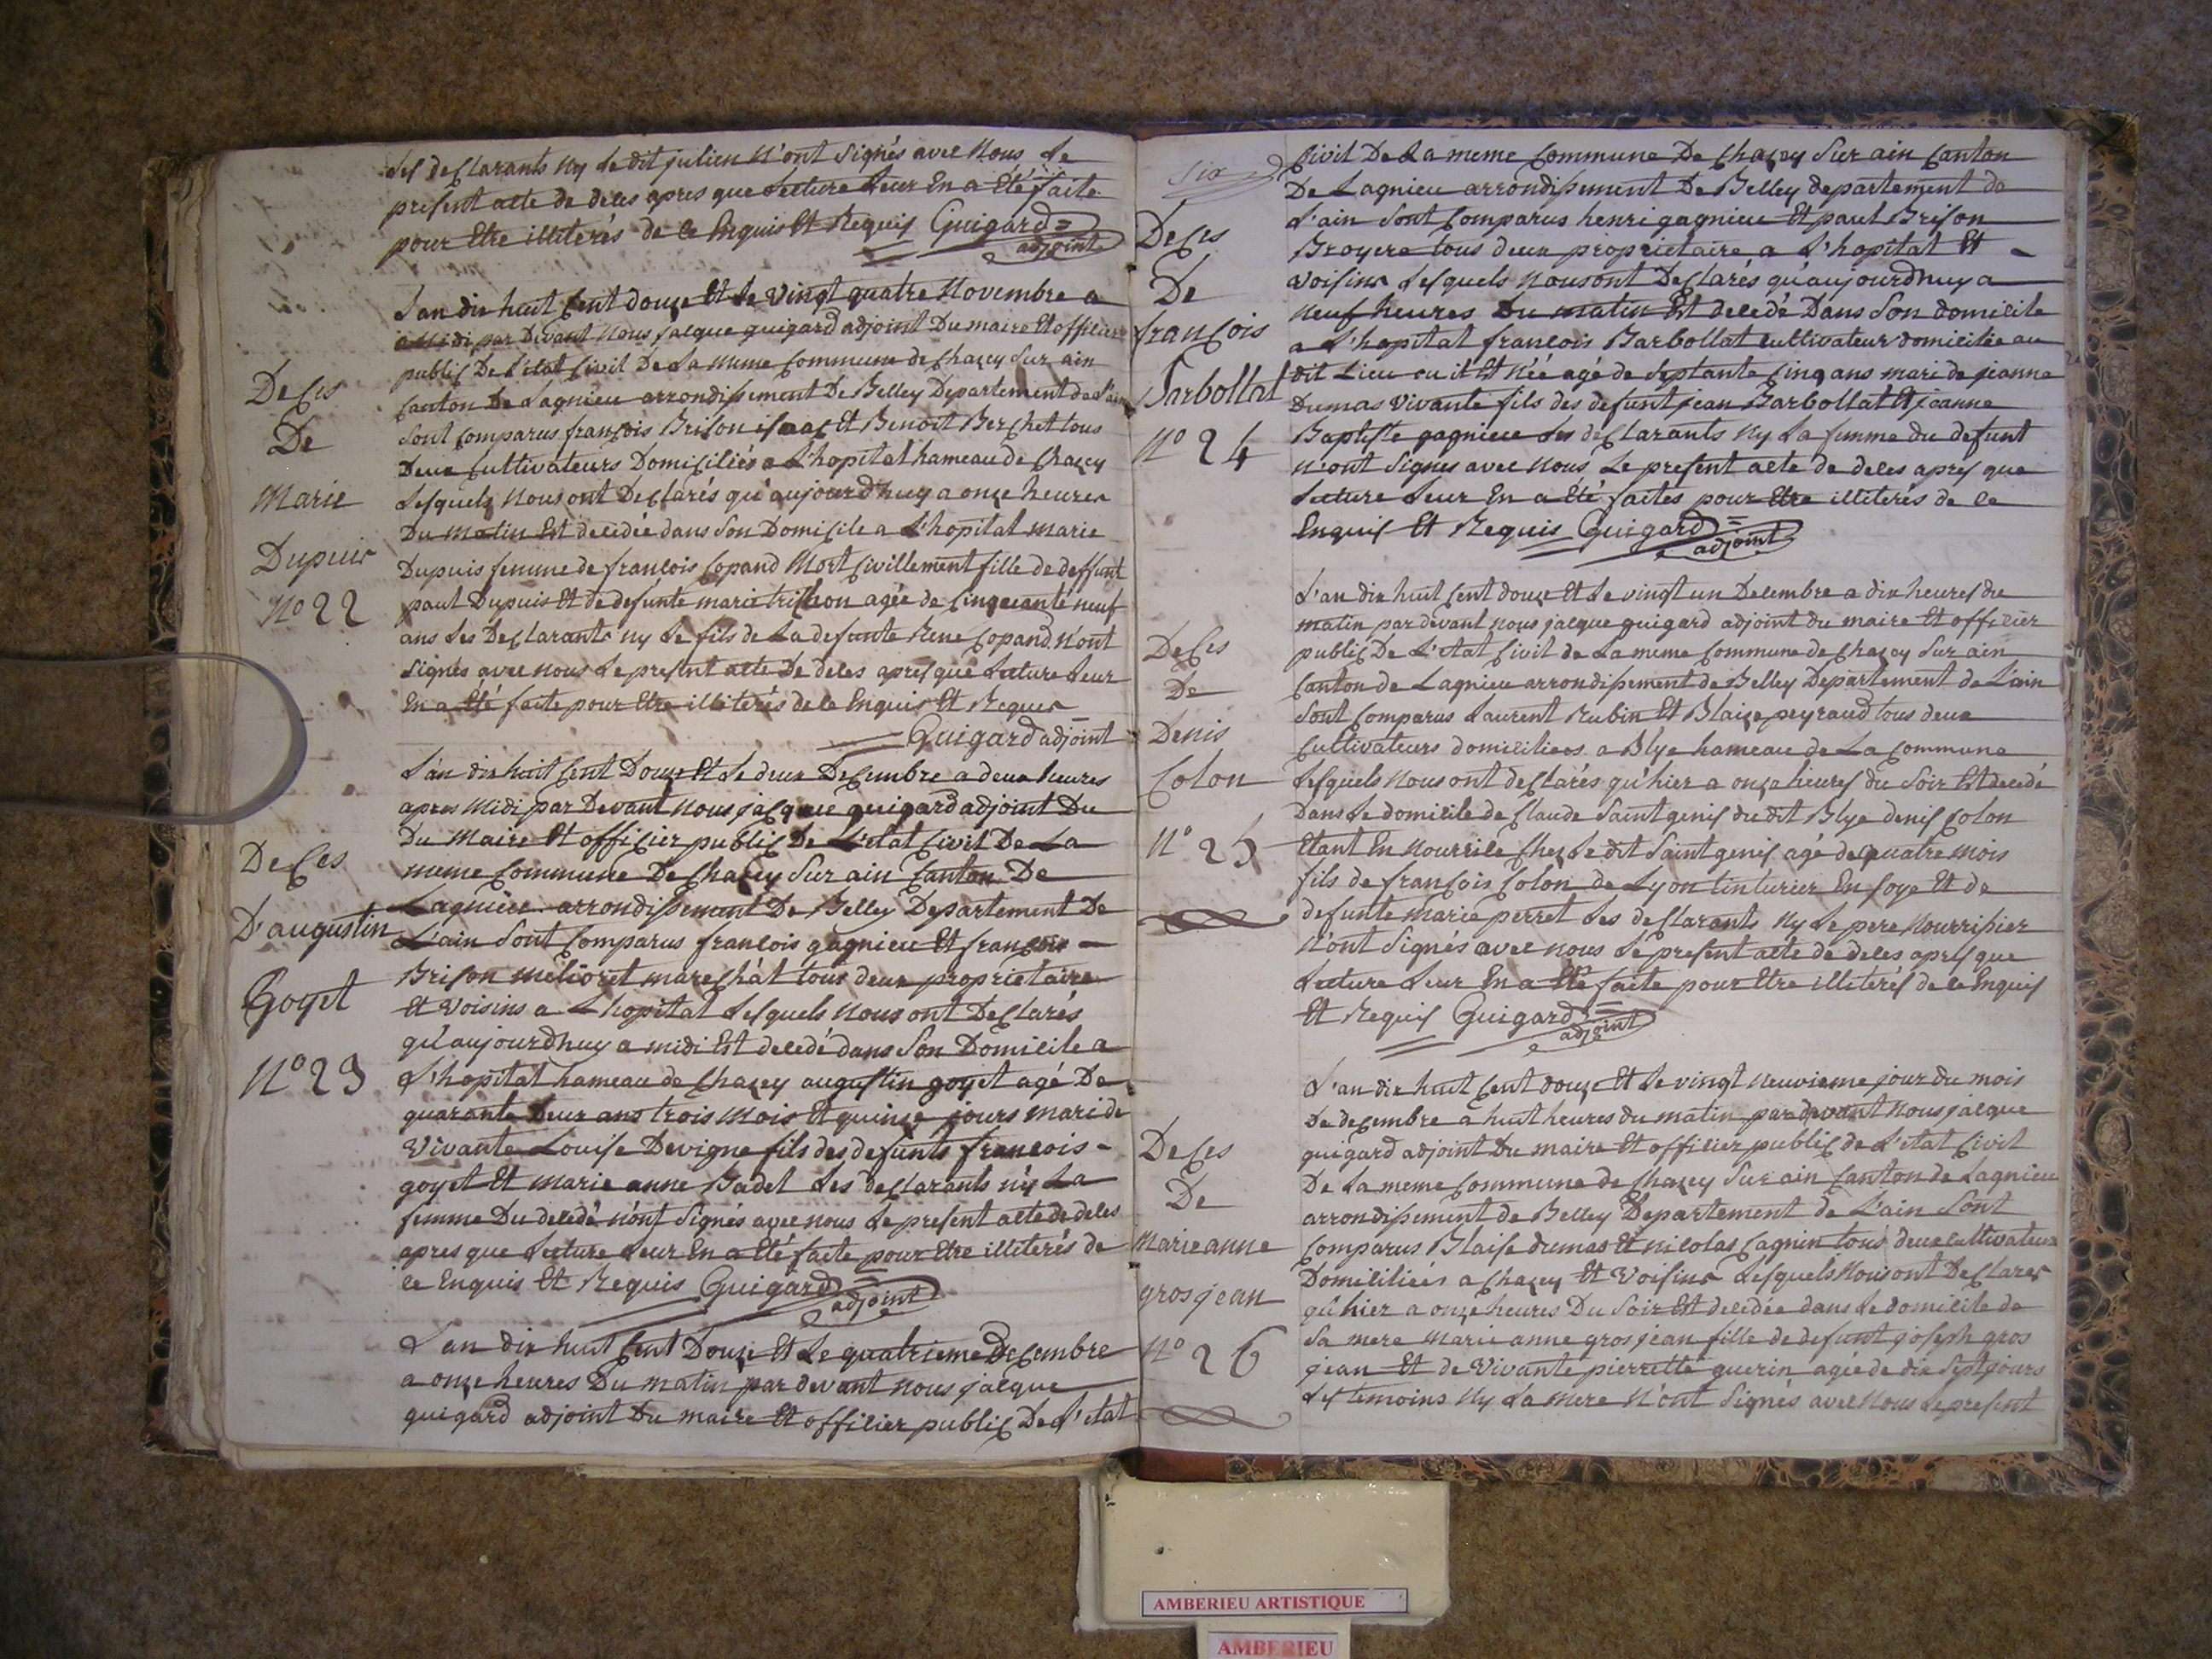 les declarants ny le dit julien n'ont signés avec nous le
present acte de deces apres que lecture leur en a été faite
pour etre illiterés de ce enquis et requis Guigard
adjoint
Deces
De
Marie
Dupuis
N° 22
L'an dix huit cent douze et le vingt quatre Novembre a
a Midi par Devant Nous jacque guigard adjoint Du maire et officier
public De l'etat civil De la meme commune de chazey sur ain
canton De Lagnieu arrondissement De Belley Departement de l'ain
sont comparus françois Brison isaac et Benoit Berchet tous
Deux cultivateurs Domiciliés a L'hopital hameau de chazey
Lesquels Nous ont Declarés qu'aujourd'huy a onze heures
Du matin Est decedée dans son Domicile a L'hopital marie
Dupuis femme de francois Copand Mort civillement fille de deffunt
paul Dupuis Et de defunte marie agée de cinquante neuf
ans les Declarants ny le fils de la defunte Rene Copand n'ont
signés avec nous le present acte De deces apres que Lecture leur
En a Eté faite pour Etre illiterés de ce Enquis Et Reques
Guigard adjoint
Deces
D'augustin
Goyet
N° 23
L'an dix huit cent Douze Et Le deux Decembre a deux heures
apres Midi par Devant Nous jacque guigard adjoint Du
Du Maire Et officier public De L'etat civil De La
meme commune De Chazey Sur ain canton De
Lagnieu arrondissement De Belley Departement De
L'ain Sont Comparus francois gagnieu Et francois
Brison melioret marechal tous deux proprietaire
Et Voisins a L'hopital Lesquels Nous ont Declarés
qu'aujourdhuy a midi Est decedé dans Son Domicile a
L'hopital hameau de Chazey augustin goyet agé De
quarante Deux ans trois Mois Et quinze jours mari de
Vivante Louise Devigne fils des defunts francois
goyet Et Marie anne Badet Les declarants ny La
femme Du decedé n'ont Signés avec nous Le present acte de deces
apres que Lecture Leur En a Eté faite pour Etre illiterés de
ce Enquis Et Requis Guigard
adjoint
L'an dix huit cent Douze Et Le quatrieme Decembre
a onze heures Du matin par devant nous jacque
guigard adjoint Du maire Et officier public De L'etat
Six
Deces
De
françois
Barbollat
N° 24
civil De La meme Commune De Chazey Sur ain Canton
De Lagnieu arrondissement De Belley departement de
L'ain Sont Comparus henri gagnieu Et paul Brison
Broyere tous deux proprietaire a L'hopital Et
voisins Lesquels Nous ont Declarés qu'aujourdhuy a
Neuf heures Du matin Est decedé Dans Son domicile
a L'hopital francois Barbollat cultivateur domiciliée au
dit Lieu ou il Est Née agé de Septante Cinq ans mari de jeanne
Dumas Vivante fils des defunt jean Barbollat Et jeanne
Baptiste gagnieu Les declarants Ny La femme du defunt
N'ont Signes avec Nous Le present acte de deces apres que
Lecture Leur En a Eté faites pour Etre illiterés de ce
Enquis Et Requis Guigard
adjoint
Deces
De
Denis
Colon
N° 25
L'an dix huit cent douze Et Le vingt un Decembre a dix heures du
matin par devant nous jacque guigard adjoint du maire Et officier
public De L'etat Civil de La meme Commune de Chazey Sur ain
Canton de Lagnieu arrondissement de Belley Departement de L'ain
Sont Comparus Laurent Rubin Et Blaize peyraud tous deux
Cultivateurs domicilieos a Blye hameau de La Commune
Lesquels Nous ont declarés qu'hier a onze heures du Soir Est decedé
Dans Le domicile de Claude Saint genis du dit Blye denis Colon
Etant En Nourrice Chez Le dit Saint genis agé de quatre mois
fils de francois Colon de Lyon tinturier En soye Et de
defunte marie perret Les declarants Ny Le pere Nourrisier
N'ont Signés avec nous Le present acte de deces apres que
Lecture Leur En a Eté faite pour Etre illiterés de ce Enquis
Et Requis Guigard
adjoint
Deces
De
Marie anne
gros jean
N° 26
L'an dix huit Cent douze Et Le vingt neuvieme jour du mois
De decembre a huit heures du matin par devant Nous jacque
guigard adjoint Du maire Et officier public de L'etat Civil
De La meme Commune de Chazey Sur ain Canton de Lagnieu
arrondissement de Belley Departement de L'ain Sont
Comparus Blaise dumas Et nicolas Cagnin tous deux cultivateur
Domiciliées a Chazey Et Voisins Lesquels Nous ont Declares
qu'hier a onze heures Du Soir Est decedée dans Le domicile de
Sa mere Marie anne gros jean fille de defunt joseph gros
jean Et de Vivante pierrette guerin agée de dix Sept jours
Les temoins Ny La mere N'ont Signés avec Nous Le present
AMBERIEU ARTISTIQUE
AMBERIEU